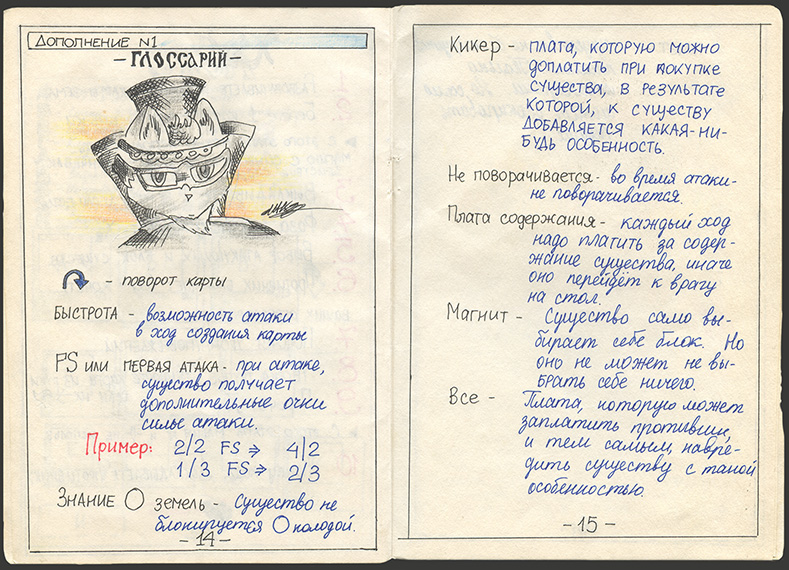 Дополнение №1
-Глоссарий-
- поворот карты
Быстрота - возможность атаки
в ход создания карты
FS или первая атака - при атаке,
существо получает
дополнительные очки
силы атаки.
Пример: 2/2 FS ⇒ 4/2
1/3 FS ⇒ 2/3
Знание О земель - Существо не
блокируется О колодой.
-14-
Кикер - плата, которую можно
доплатить при покупке
существа, в результате
которой, к существу
добавляется какая-ни-
будь особенность.
Не поворачивается - во время атаки -
не поворачивается.
Плата содержания - каждый ход
надо платить за содер-
жание существа, иначе
оно перейдёт к врагу
на стол.
Магнит - Существо само вы-
бирает себе блок. Но
оно не может не вы-
брать себе ничего.
Все - Плата, которую может
заплатить противник,
и тем самым, навре-
дить существу с такой
особенностью.
-15-